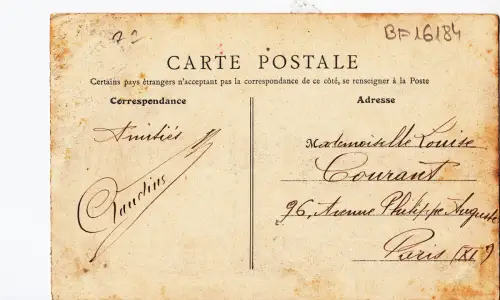 22
BF 16184
CARTE POSTALE
Certains pays étrangers n'acceptant pas la correspondance de ce côté, se renseigner à la Poste
Correspondance
Adresse
Amitiés
Claudius
Mademoiselle Louise
Courant
96, Avenue Philippe Auguste
Paris (XIe)